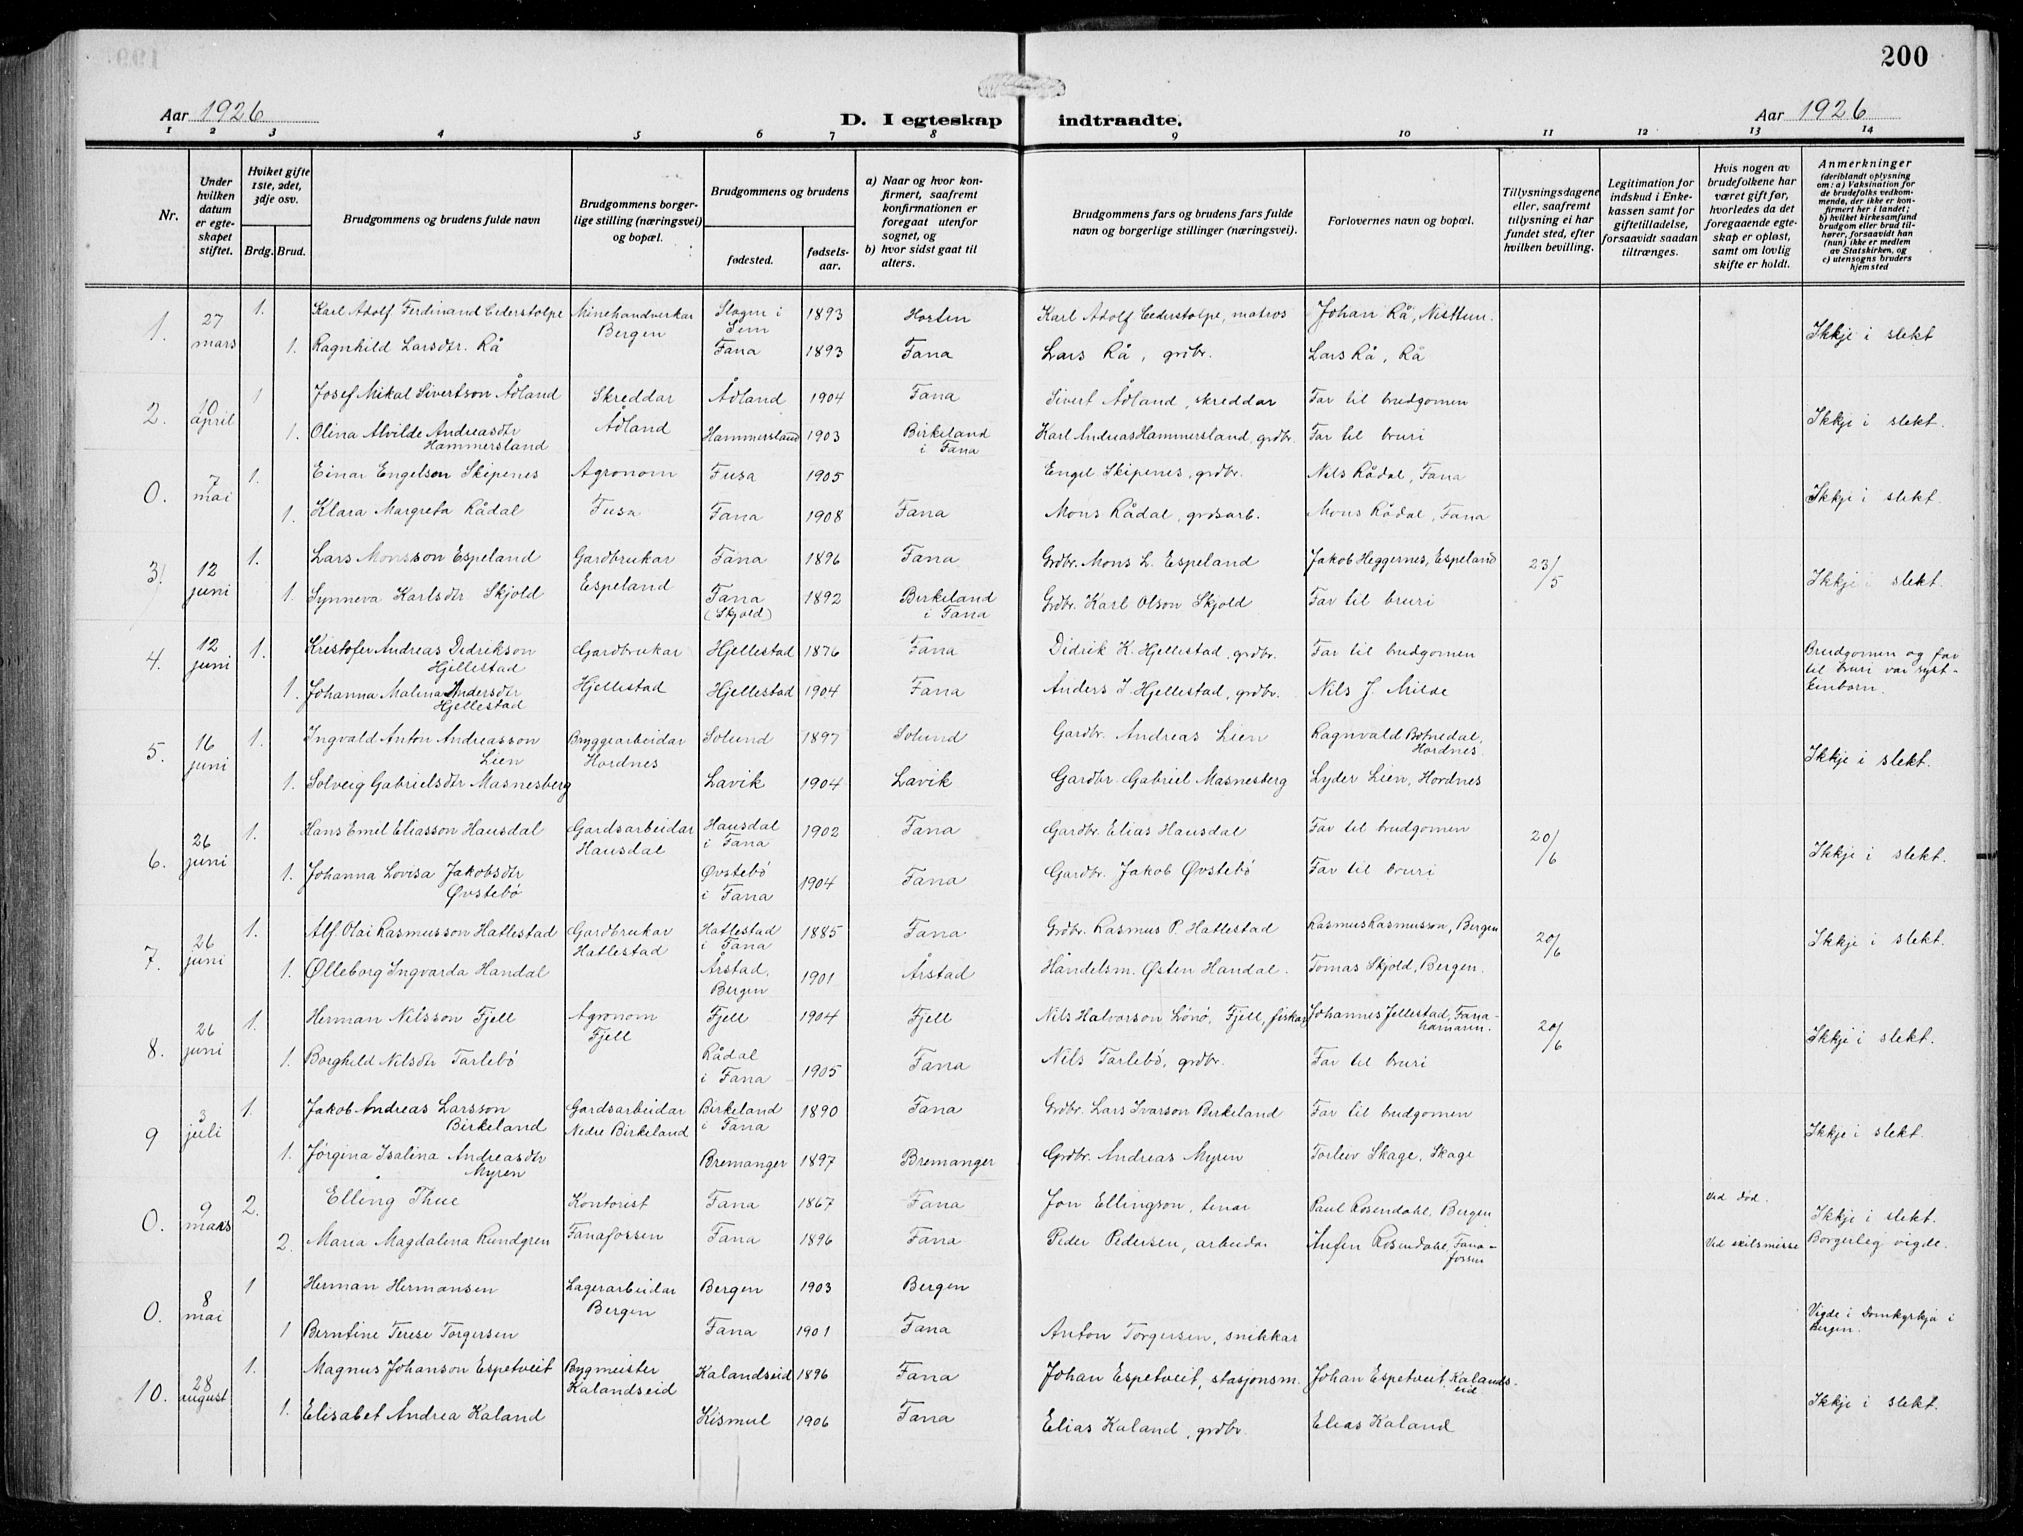 200
Aar 1926
D. I egteskap indtraadte.
Aar 1926
1 2 3 4 5 6 7 8 9 10 11 12 13 14
Nr.
Under hvilken datum er egteskapet stiftet.
Hviket gifte 1ste, 2det, 3dje osv.
Brdg. Brud.
Brudgommens og brudens fulde navn
Brudgommens borgerlige stilling (næringsvei) og bopæl.
Brudgommens og brudens
fødested. fødselsaar.
a) Naar og hvor konfirmert, saafremt konfirmationen er foregaat utenfor sognet, og
b) hvor sidst gaat til alters.
Brudgommens fars og brudens fars fulde navn og borgerlige stillinger (næringsvei).
Forlovernes navn og bopæl.
Tillysningsdagene eller, saafremt tillysning ei har fundet sted, efter hvilken bevilling.
Legitimation for indskud i Enkekassen samt for giftetilladelse, forsaavidt saadan tiltrænges.
Hvis nogen av brudefolkene har været gift før, hvorledes da det foregaaende egteskap er opløst, samt om lovlig skifte er holdt.
Anmerkninger (deriblandt oplysning om: a) Vaksination for de brudefolks vedkommende, der ikke er konfirmert her i landet; b) hvilket kirkesamfund brudgom eller brud tilhører, forsaavidt han (hun) ikke er medlem av Statskirken, og c) utensogns bruders hjemsted
1. 27 mars 1. Karl Adolf Ferdinand Cederstolpe Minehandverkar Bergen Slagen i Sem 1893 Horten Karl Adolf Cederstolpe, matros Johan Rå, Nesttun. Ikkje i slekt
1. Ragnhild Larsdtr. Rå Fana 1893 Fana Lars Rå, grdbr. Lars Rå, Rå
2. 10 april 1 Josef Mikal Sivertson Ådland Skreddar Ådland Ådland 1904 Fana Sivert Ådland, skreddar Far til brudgomen Ikkje i slekt.
1. Olina Alvilde Andreasdtr Hammersland Hammersland 1903 Birkeland i Fana Karl Andreas Hammersland, grdbr. Far til bruri
0. 7 mai 1. Einar Engelson Skipenes Agronom Fusa Fusa 1905 Engel Skipenes, grdbr. Nils Rådal, Fana Ikkje i slekt.
1. Klara Margreta Rådal Fana 1908 Fana Mons Rådal, grdsarb. Mons Rådal, Fana
3. 12 juni 1. Lars Monsson Espeland Gardbrukar Espeland Fana 1896 Fana Grdbr. Mons L. Espeland Jakob Heggernes, Espeland 23/5 Ikkje i slekt.
1. Synneva Karlsdtr Skjold Fana (Skjold) 1892 Birkeland i Fana Grdbr. Karl Olson Skjold Far til bruri
4. 12 juni 1. Kristofer Andreas Didrikson Hjellestad Gardbrukar Hjellestad Hjellestad 1876 Fana Didrik K. Hjellestad, grdbr. Far til brudgomen Brudgomen og far til bruri var systkenborn.
1. Johanna Malena Andersdtr Hjellestad Hjellestad 1904 Fana Anders I. Hjellestad, grdbr. Nils J. Milde
5. 16 juni 1. Ingvald Anton Andreasson Lien Bryggearbeidar Hordnes Solund 1897 Solund Gardbr. Andreas Lien Ragnvald Botnedal, Hordnes. Ikkje i slekt.
1. Solveig Gabrielsdtr Masnesberg Lavik 1904 Lavik Gardbr. Gabriel Masnesberg Lyder Lien, Hordnes
6. 26 juni 1. Hans Emil Eliasson Hausdal Gardsarbeidar Hausdal Hausdal i Fana 1902 Fana Gardbr. Elias Hausdal Far til brudgomen 20/6 Ikkje i slekt.
1. Johanna Lovisa Jakobsdtr Øvstebö Øvstebö i Fana 1904 Fana Gardbr. Jakob Øvstebö Far til bruri
7. 26 juni 1. Alf Olai Rasmusson Hatlestad Gardbrukar Hatlestad Hatlestad i Fana 1885 Fana Grdbr. Rasmus P. Hatlestad Rasmus Rasmusson, Bergen 20/6 Ikkje i slekt.
1. Ølleborg Ingvarda Handal Årstad, Bergen 1901 Årstad Handelsm. Østen Handal. Tomas Skjold, Bergen.
8. 26 juni 1. Herman Nilsson Fjell Agronom Fjell Fjell 1904 Fjell Nils Halvorson Lönö, Fjell, fiskar Johannes Jellestad, Fanahamarn. 20/6 Ikkje i slekt.
1. Borghild Nilsdtr Tarlebö Rådal i Fana 1905 Fana Nils Tarlebö, grdbr. Far til bruri
9 3 juli 1. Jakob Andreas Larsson Birkeland Gardsarbeidar Nedre Birkeland Birkeland i Fana 1890 Fana Grdbr. Lars Ivarson Birkeland Far til brudgomen Ikkje i slekt.
1. Jörgina Isalina Andreasdtr Myren Bremanger 1897 Bremanger Grdbr. Andreas Myren Torleiv Skage, Skage
0. 9 mars 2. Elling Thue Kontorist Fanafossen Fana 1867 Fana Jon Ellingson, tenar Paul Rosendahl, Bergen Ved död. Ikkje i slekt.
2. Maria Magdalena Rundgren Fana 1896 Fana Peder Pedersen, arbeidar Anfin Rosendahl, Fanafossen Ved skilsmisse Borgerleg vigde.
0. 8 mai 1 Herman Hermansen Lagerarbeidar Bergen Bergen 1903 Bergen Vigde i Domkyrkja i Bergen.
1 Berntine Terese Torgersen Fana 1901 Fana Anton Torgersen, snikkar
10. 28 august 1. Magnus Johanson Espetveit Bygmeister Kalandseid Kalandseid 1896 Fana Johan Espetveit, stasjonsm. Johan Espetveit, Kalandseid Ikkje i slekt.
1. Elisabet Andrea Kaland Kismul 1906 Fana Elias Kaland, grdbr. Elias Kaland